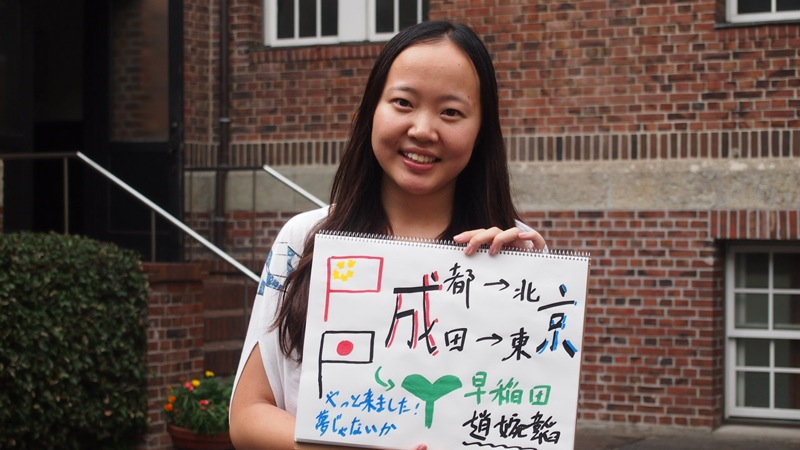 成都→北京
田→東
早稲田
やっと来ました!
夢じゃないか
趙婉